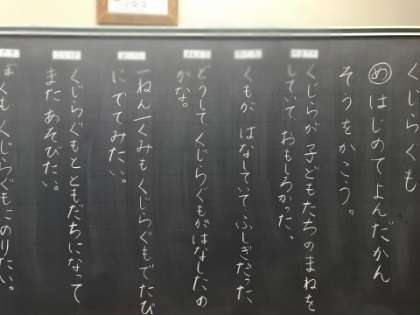 くじらぐも
め はじめてよんだかん
そうをかこう。
くじらが 子どもたちのまねを
していて おもしろかった。
くもが はなしていてふしぎだった。
どうして くじらぐもがはなしたの
かな。
一ねん一くみもくじらぐもでたび
に でてみたい。
くじらぐもとともだちになって
また あそびたい。
ぼくも くじらぐもにのりたい。